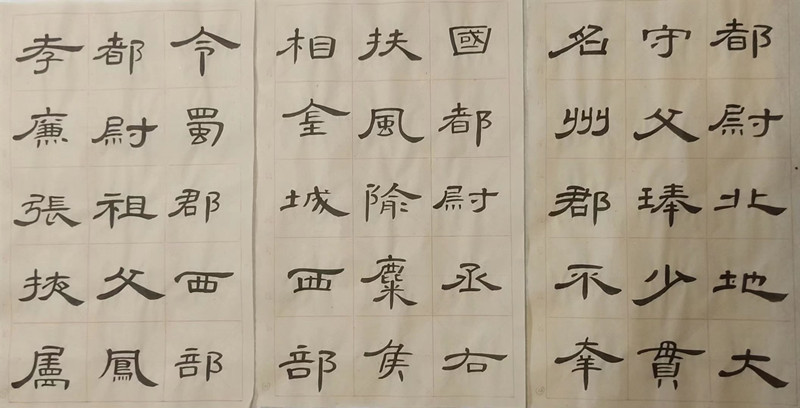 令蜀郡西部
都尉祖父鳳
孝廉張掖屬
國都尉丞右
扶風隃麋侯
相金城西部
都尉北地大
守父琫少貫
名州郡不幸